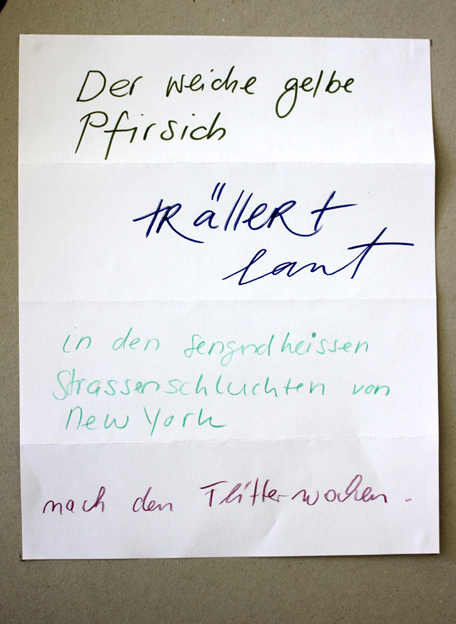 Der weiche gelbe
Pfirsich
trällert
laut
in den sengndheissen
Strassenschluchten von
New York
nach den Flitterwochen.